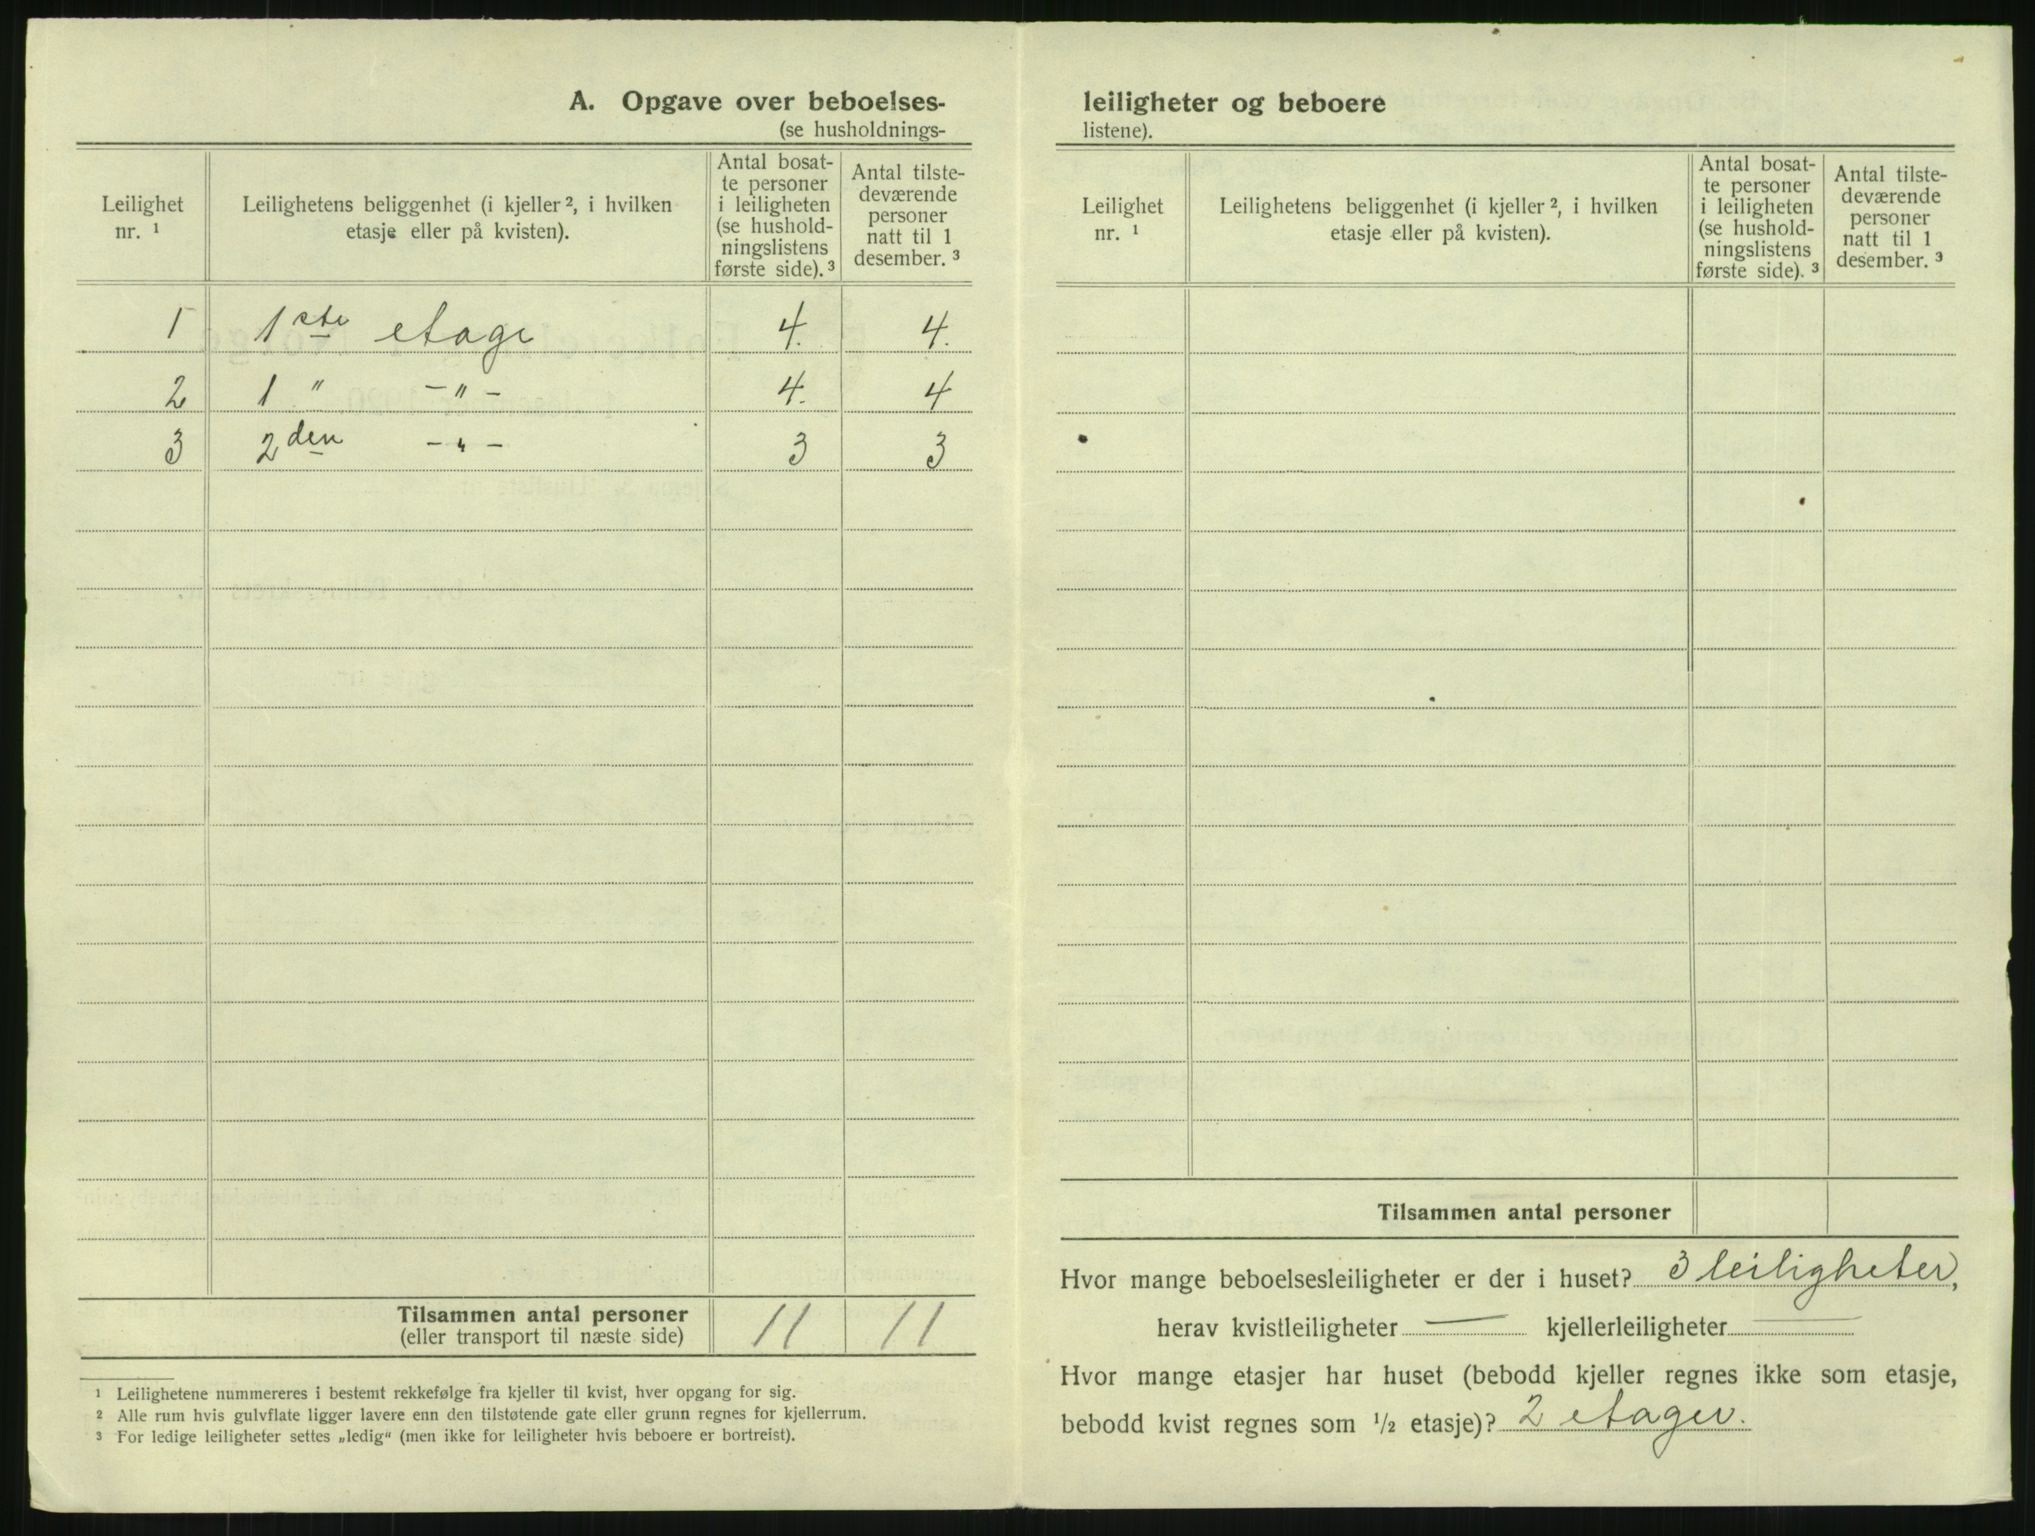 A. Opgave over beboelses-
(se husholdnings-
Leilighet nr. ¹
Leilighetens beliggenhet (i kjeller ², i hvilken
etasje eller på kvisten).
Antal bosat-
te personer
i leiligheten
(se hushold-
ningslistens
første side). ³
Antal tilste-
deværende
personer
natt til 1
desember. ³
1 1ste etage 4. 4.
2 1 " — " — 4. 4
3 2den — " — 3 3
Tilsammen antal personer
(eller transport til næste side) 11 11
¹ Leilighetene nummereres i bestemt rekkefølge fra kjeller til kvist, hver opgang for sig.
² Alle rum hvis gulvflate ligger lavere enn den tilstøtende gate eller grunn regnes for kjellerrum.
³ For ledige leiligheter settes „ledig“ (men ikke for leiligheter hvis beboere er bortreist).
leiligheter og beboere
listene).
Leilighet nr. ¹
Leilighetens beliggenhet (i kjeller ², i hvilken
etasje eller på kvisten).
Antal bosat-
te personer
i leiligheten
(se hushold-
ningslistens
første side). ³
Antal tilste-
deværende
personer
natt til 1
desember. ³
Tilsammen antal personer
Hvor mange beboelsesleiligheter er der i huset? 3 leiligheter,
herav kvistleiligheter — kjellerleiligheter —
Hvor mange etasjer har huset (bebodd kjeller regnes ikke som etasje,
bebodd kvist regnes som ½ etasje)? 2 etager.